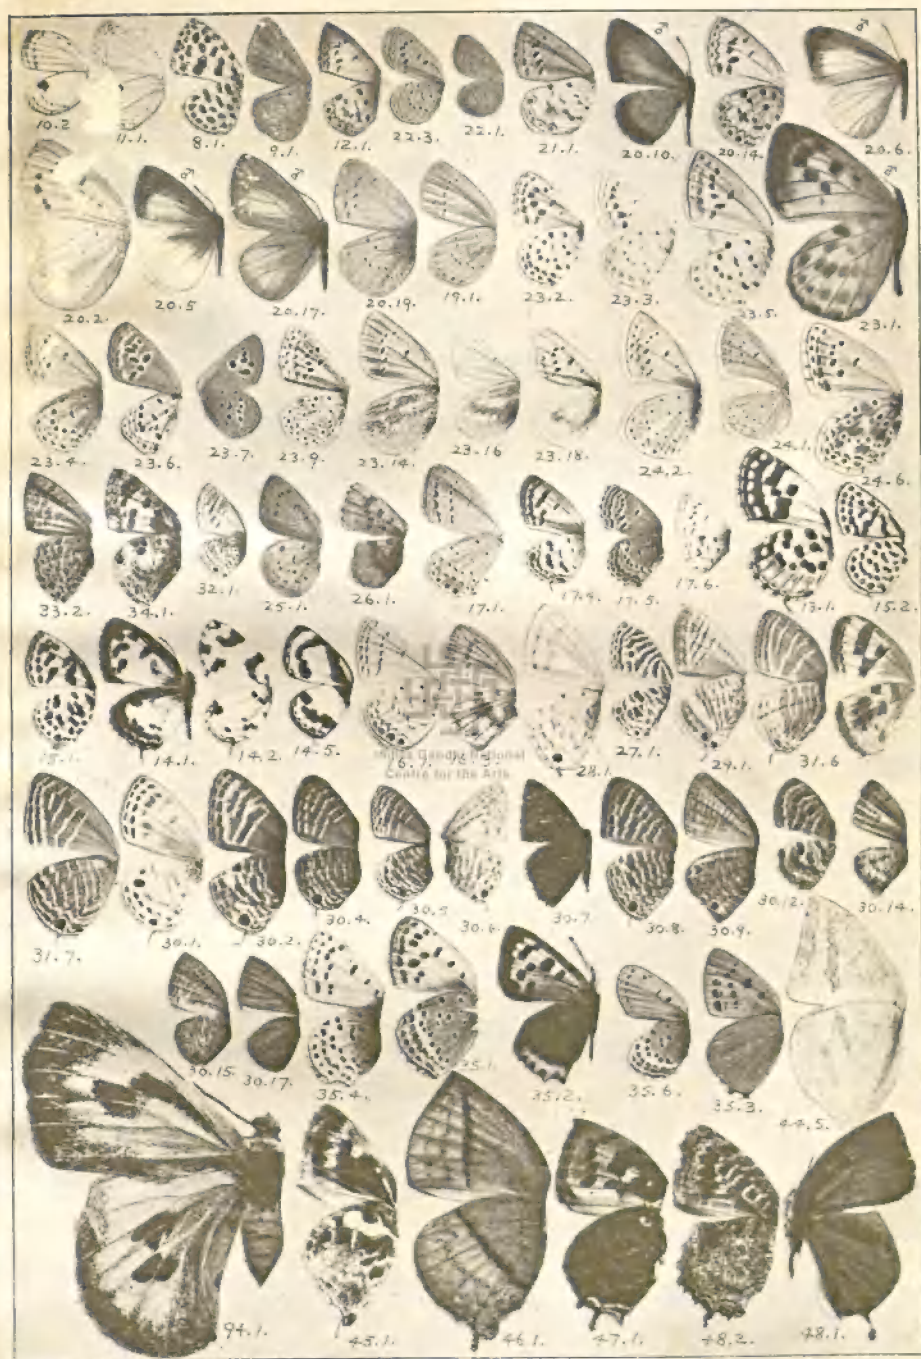 ♂ ♂
10.2 11.1. 8.1. 9.1. 12.1. 22.3. 22.1. 21.1. 20.10. 20.14. 20.6.
♂ ♂ ♂
20.2. 20.5 20.17. 20.19. 19.1. 23.2. 23.3. 23.5. 23.1.
23.4. 23.6. 23.7. 23.9. 23.14. 23.16 23.18. 24.2. 24.1. 24.6.
33.2. 34.1. 32.1. 25.1. 26.1. 17.1. 17.4. 17.5. 17.6. 13.1. 15.2.
15.1. 14.1. 14.2. 14.5. 28.1. 27.1. 29.1. 31.6
Indira Gandhi National
Centre for the Arts
31.7. 30.1. 30.2. 30.4. 30.5 30.6. 30.7. 30.8. 30.9. 30.12. 30.14.
30.15. 30.17. 35.4. 35.1. 35.2. 35.6. 35.3. 44.5.
94.1. 45.1. 46.1. 47.1. 48.2. 48.1.